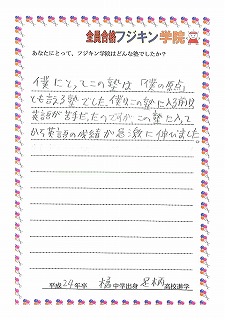 全員合格フジキン学院
あなたにとって、フジキン学院はどんな塾でしたか？
僕にとってこの塾は「僕の原点」
とも言える塾でした。僕はこの塾に入る前は
英語が苦手だったのですが、この塾に入って
から英語の成績が急激に伸びました。
平成24年卒 橘中学出身 足柄高校進学